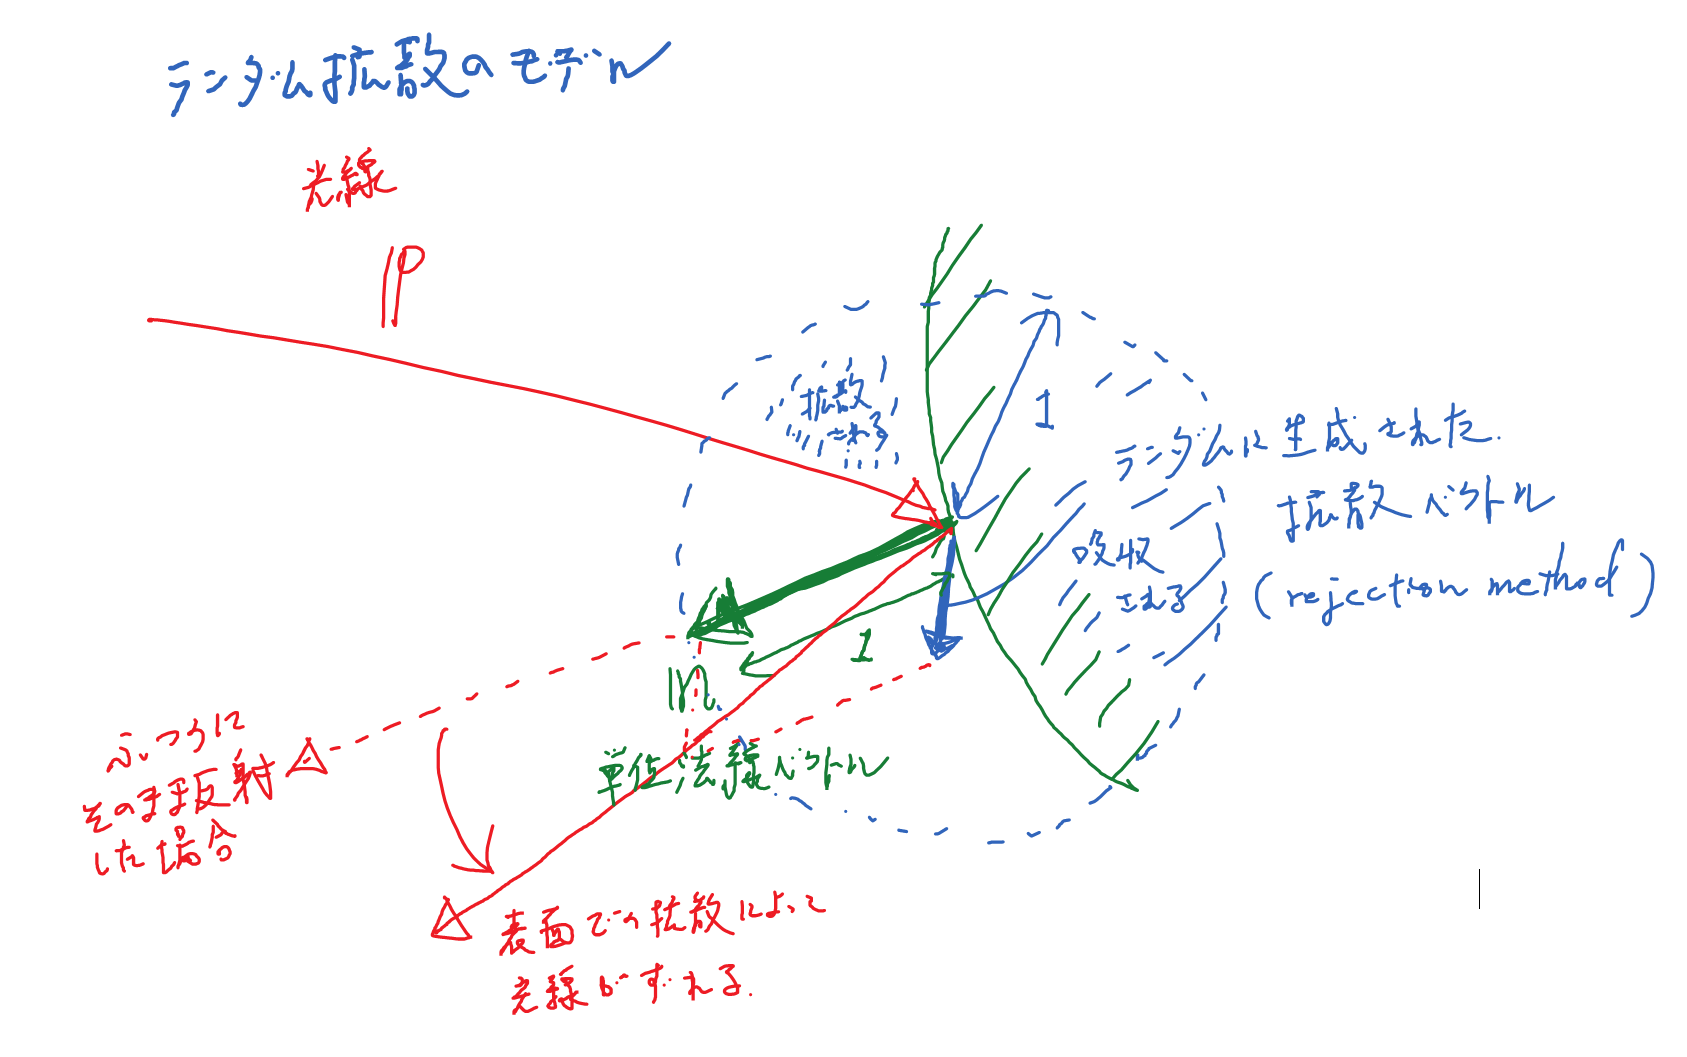 ランダム拡散のモデル
光線
P
拡散
される
1
ランダムに生成された
拡散ベクトル
(rejection method)
吸収
される
1
n
単位法線ベクトル
ふつうに
そのまま反射
した場合
表面での拡散によって
光線がずれる.